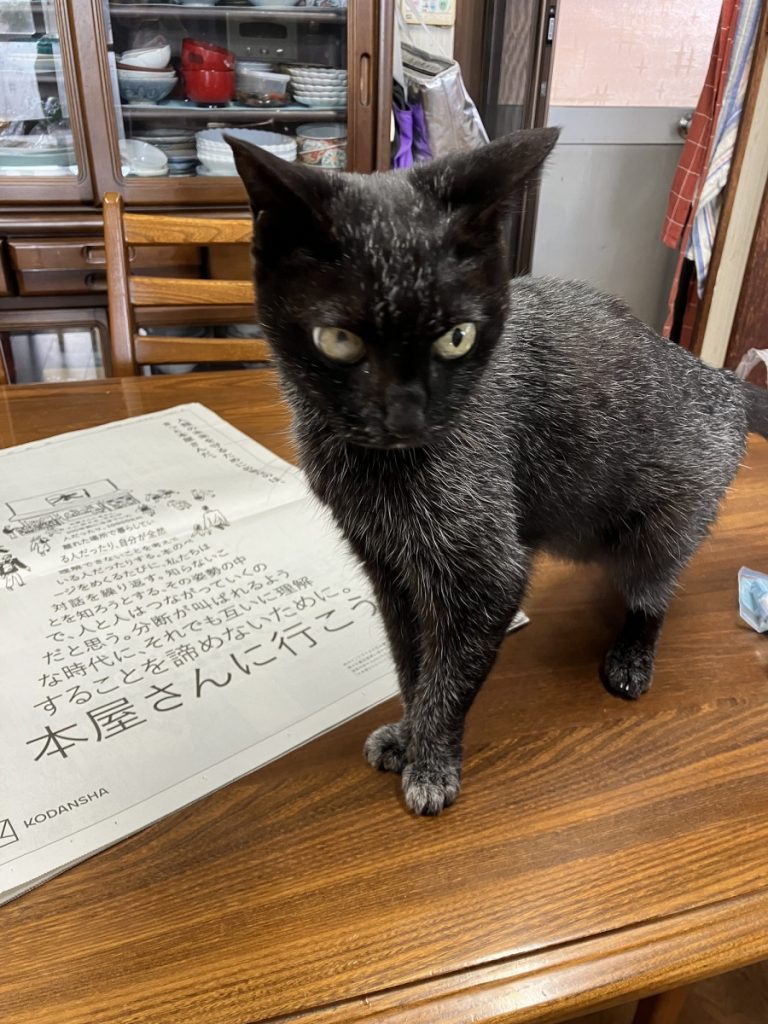 本
離れた場所で暮らしてい
る人だったり、自分が全然
理解できないことを考えて
いる人だったりする。本のペ
ージをめくるたびに、私たちは
対話を繰り返す。知らないこ
とを知ろうとする、その姿勢の中
で、人と人はつながっていくの
だと思う。分断が叫ばれるよう
な時代に、それでも互いに理解
することを諦めないために。
本屋さんに行こう
KODANSHA